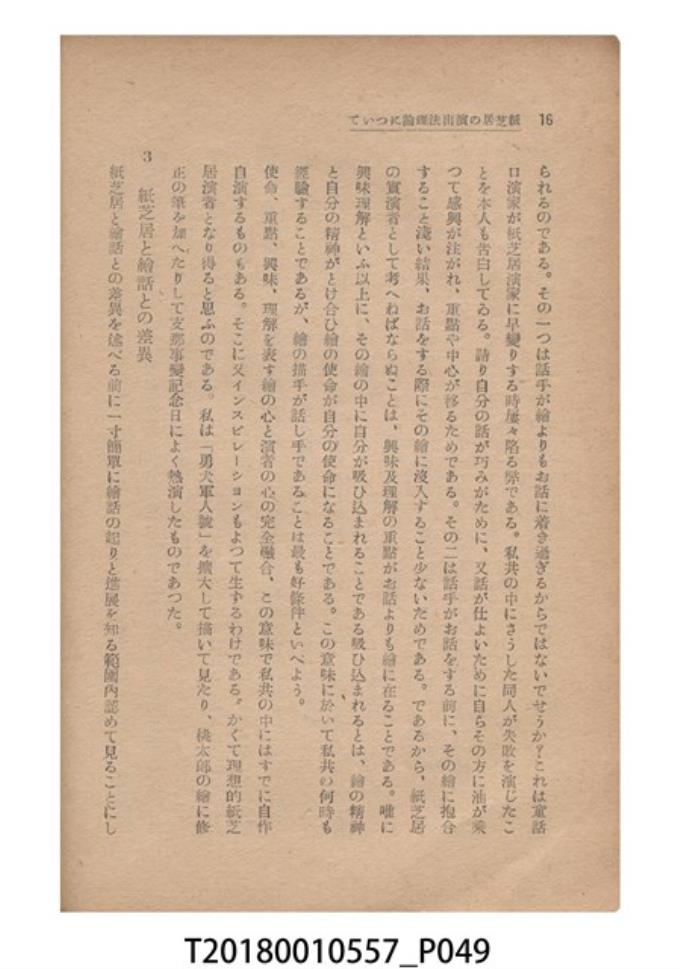 16
ていつに論理法出演の居芝紙
られるのである。その一つは話手が繪よりもお話に着き過ぎるからではないでせうか？これは童話
口演家が紙芝居演家に早變りする時屢々陷る弊である。私共の中にさうした同人が失敗を演じたこ
とを本人も告白してゐる。語り自分の話が巧みがために、又話が仕よいために自らその方に油が乘
つて感興が注がれ、重點や中心が移るためである。その二は話手がお話をする前に、その繪に抱合
すること淺い結果、お話をする際にその繪に沒入すること少ないためである。であるから、紙芝居
の實演者として考へねばならぬことは、興味及理解の重點がお話よりも繪に在ることである。唯に
興味理解といふ以上に、その繪の中に自分が吸ひ込まれることである吸ひ込まれるとは、繪の精神
と自分の精神がとけ合ひ繪の使命が自分の使命になることである。この意味に於いて私共の何時も
經驗することであるが、繪の描手が話し手であることは最も好條件といへよう。
使命、重點、興味、理解を表す繪の心と演者の心の完全融合、この意味で私共の中にはすでに自作
自演するものもある。そこに又インスピレーションもよつて生ずるわけである。かくて理想的紙芝
居演者となり得ると思ふのである。私は「勇犬軍人號」を擴大して描いて見たり、桃太郎の繪に修
正の筆を加へたりして支那事變記念日によく熱演したものであつた。
3 紙芝居と繪話との差異
紙芝居と繪話との差異を述べる前に一寸簡單に繪話の起りと進展を知る範圍內認めて見ることにし
T20180010557_P049